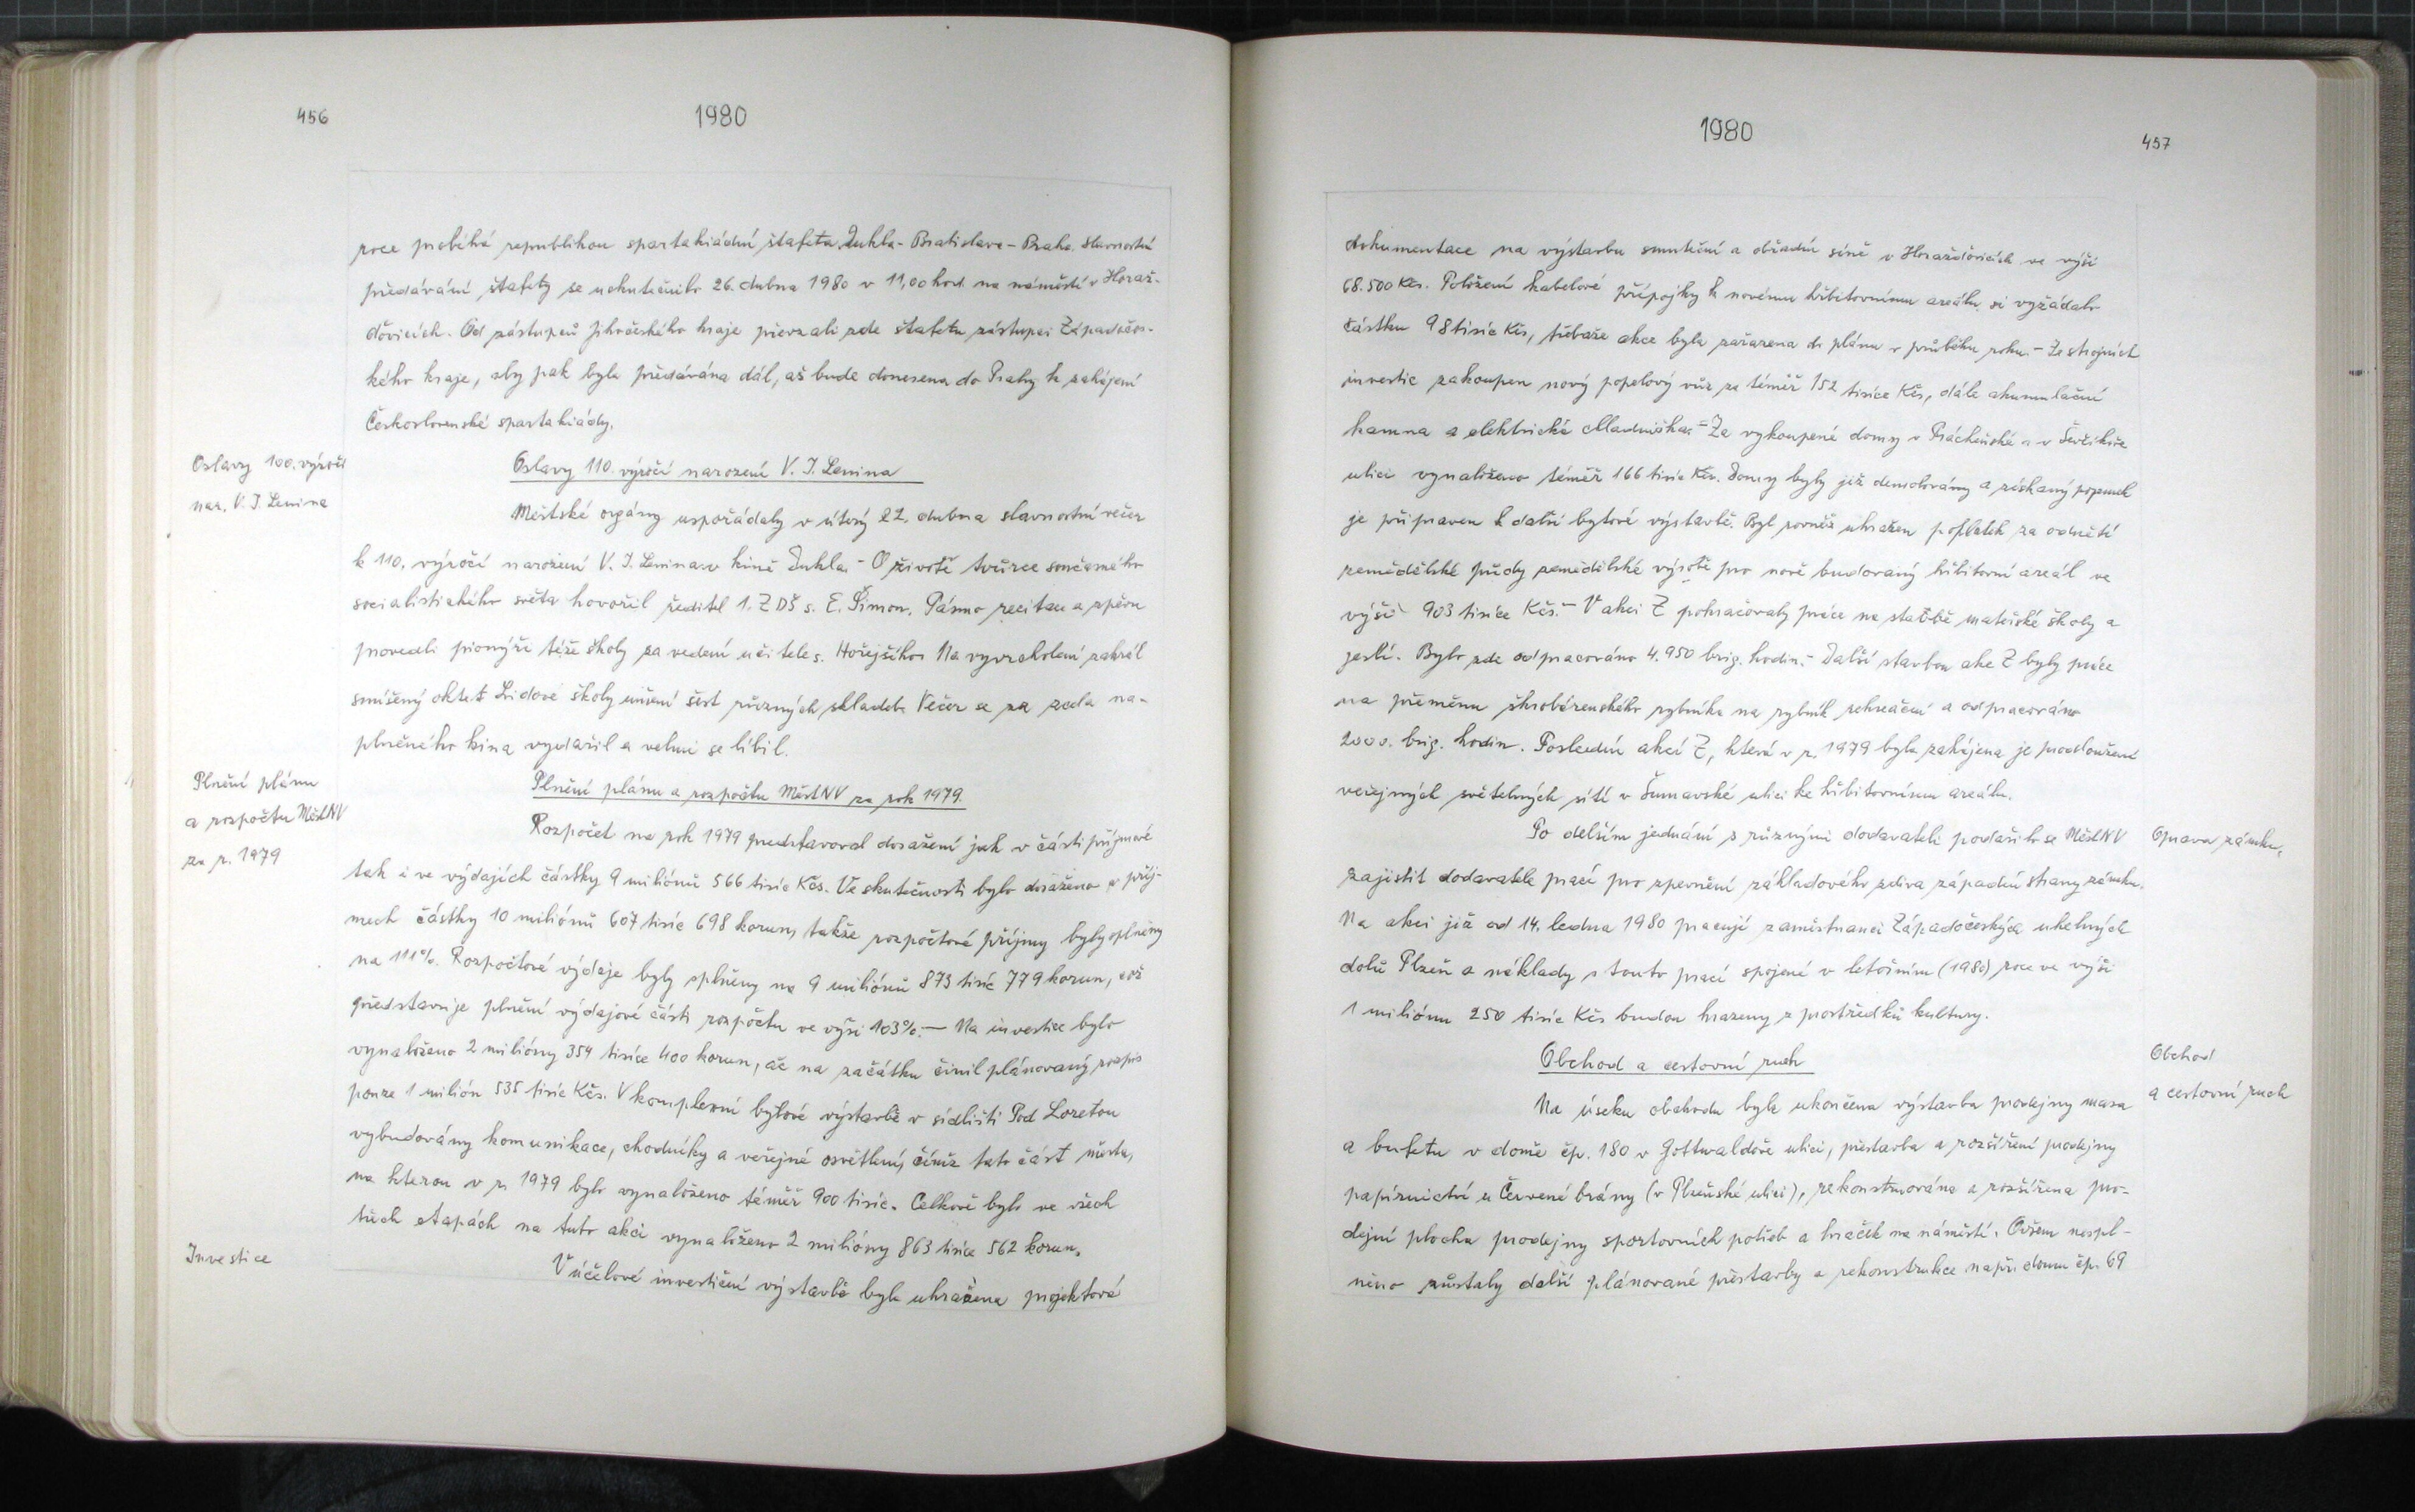 456
1980
roce probíhá republikou spartakiádní štafeta Dukla - Bratislava - Praha. Slavnostní
předávání štafety se uskutečnilo 26. dubna 1980 v 11,00 hod. na náměstí v Horaž-
ďovicích. Od zástupců Jihočeského kraje převzali zde štafetu zástupci Západočes-
kého kraje, aby pak byla předávána dál, až bude donesena do Prahy k zahájení
Československé spartakiády.
Oslavy 100. výročí
nar. V. I. Lenina
Oslavy 110. výročí narození V. I. Lenina
Městské orgány uspořádaly v úterý 22. dubna slavnostní večer
k 110. výročí narození V. I. Lenina v kině Dukla. - O životě tvůrce současného
socialistického světa hovořil ředitel 1. ZDŠ s. E. Šimon. Pásmo recitací a zpěvu
provedli pionýři téže školy za vedení učitele s. Hořejšího. Na vyvrcholení zahrál
smíšený oktet Lidové školy umění šest různých skladeb. Večer se za zcela na-
plněného kina vydařil a velmi se líbil.
Plnění plánu
a rozpočtu MěstNV
za r. 1979
Plnění plánu a rozpočtu MěstNV za rok 1979.
Rozpočet na rok 1979 představoval dosažení jak v části příjmové
tak i ve výdajích částky 9 miliónů 566 tisíc Kčs. Ve skutečnosti bylo dosaženo v příj-
mech částky 10 miliónů 607 tisíc 698 korun, takže rozpočtové příjmy byly splněny
na 111%. Rozpočtové výdaje byly splněny na 9 miliónů 873 tisíc 779 korun, což
představuje plnění výdajové části rozpočtu ve výši 103%. — Na investice bylo
vynaloženo 2 milióny 354 tisíce 400 korun, ač na začátku činil plánovaný rozpis
pouze 1 milión 535 tisíc Kčs. V komplexní bytové výstavbě v sídlišti Pod Loretou
vybudovány komunikace, chodníky a veřejné osvětlení, čímž tato část města,
na kterou v r. 1979 bylo vynaloženo téměř 900 tisíc. Celkově bylo ve všech
třech etapách na tuto akci vynaloženo 2 milióny 863 tisíc 562 korun.
Investice
V účelové investiční výstavbě byla uhrazena projektová
1980
457
dokumentace na výstavbu smuteční a obřadní síně v Horažďovicích ve výši
68.500 Kčs. Položení kabelové přípojky k novému hřbitovnímu areálu si vyžádalo
částku 98 tisíc Kčs, třebaže akce byla zařazena do plánu v průběhu roku. - Ze strojních
investic zakoupen nový popelový vůz za téměř 152 tisíce Kčs, dále akumulační
kamna a elektrická chladnička. - Za vykoupené domy v Prácheňské a v Ševčíkově
ulici vynaloženo téměř 166 tisíc Kčs. Domy byly již demolovány a získaný pozemek
je připraven k další bytové výstavbě. Byl rovněž uhrazen poplatek za odnětí
zemědělské půdy zemědělské výrobě pro nově budovaný hřbitovní areál ve
výši 903 tisíce Kčs. - V akci Z pokračovaly práce na stavbě mateřské školy a
jeslí. Bylo zde odpracováno 4.950 brig. hodin. - Další stavbou akce Z byly práce
na přeměnu škrobárenského rybníka na rybník rekreační a odpracováno
2000. brig. hodin. Poslední akcí Z, která v r. 1979 byla zahájena je prodloužení
veřejných světelných sítí v Šumavské ulici ke hřbitovnímu areálu.
Po delším jednání s různými dodavateli podařilo se MěstNV
Oprava zámku.
zajistit dodavatele prací pro zpevnění základového zdiva západní strany zámku.
Na akci již od 14. ledna 1980 pracují zaměstnanci Západočeských uhelných
dolů Plzeň a náklady s touto prací spojené v letošním (1980) roce ve výši
1 miliónu 250 tisíc Kčs budou hrazeny z prostředků kultury.
Obchod a cestovní ruch
Obchod
a cestovní ruch
Na úseku obchodu byla ukončena výstavba prodejny masa
a bufetu v domě čp. 180 v Gottwaldově ulici, přestavba a rozšíření prodejny
papírnictví u Červené brány (v Plzeňské ulici), rekonstruována a rozšířena pro-
dejní plocha prodejny sportovních potřeb a hraček na náměstí. Ovšem nespl-
něno zůstaly další plánované přestavby a rekonstrukce např. domu čp. 69